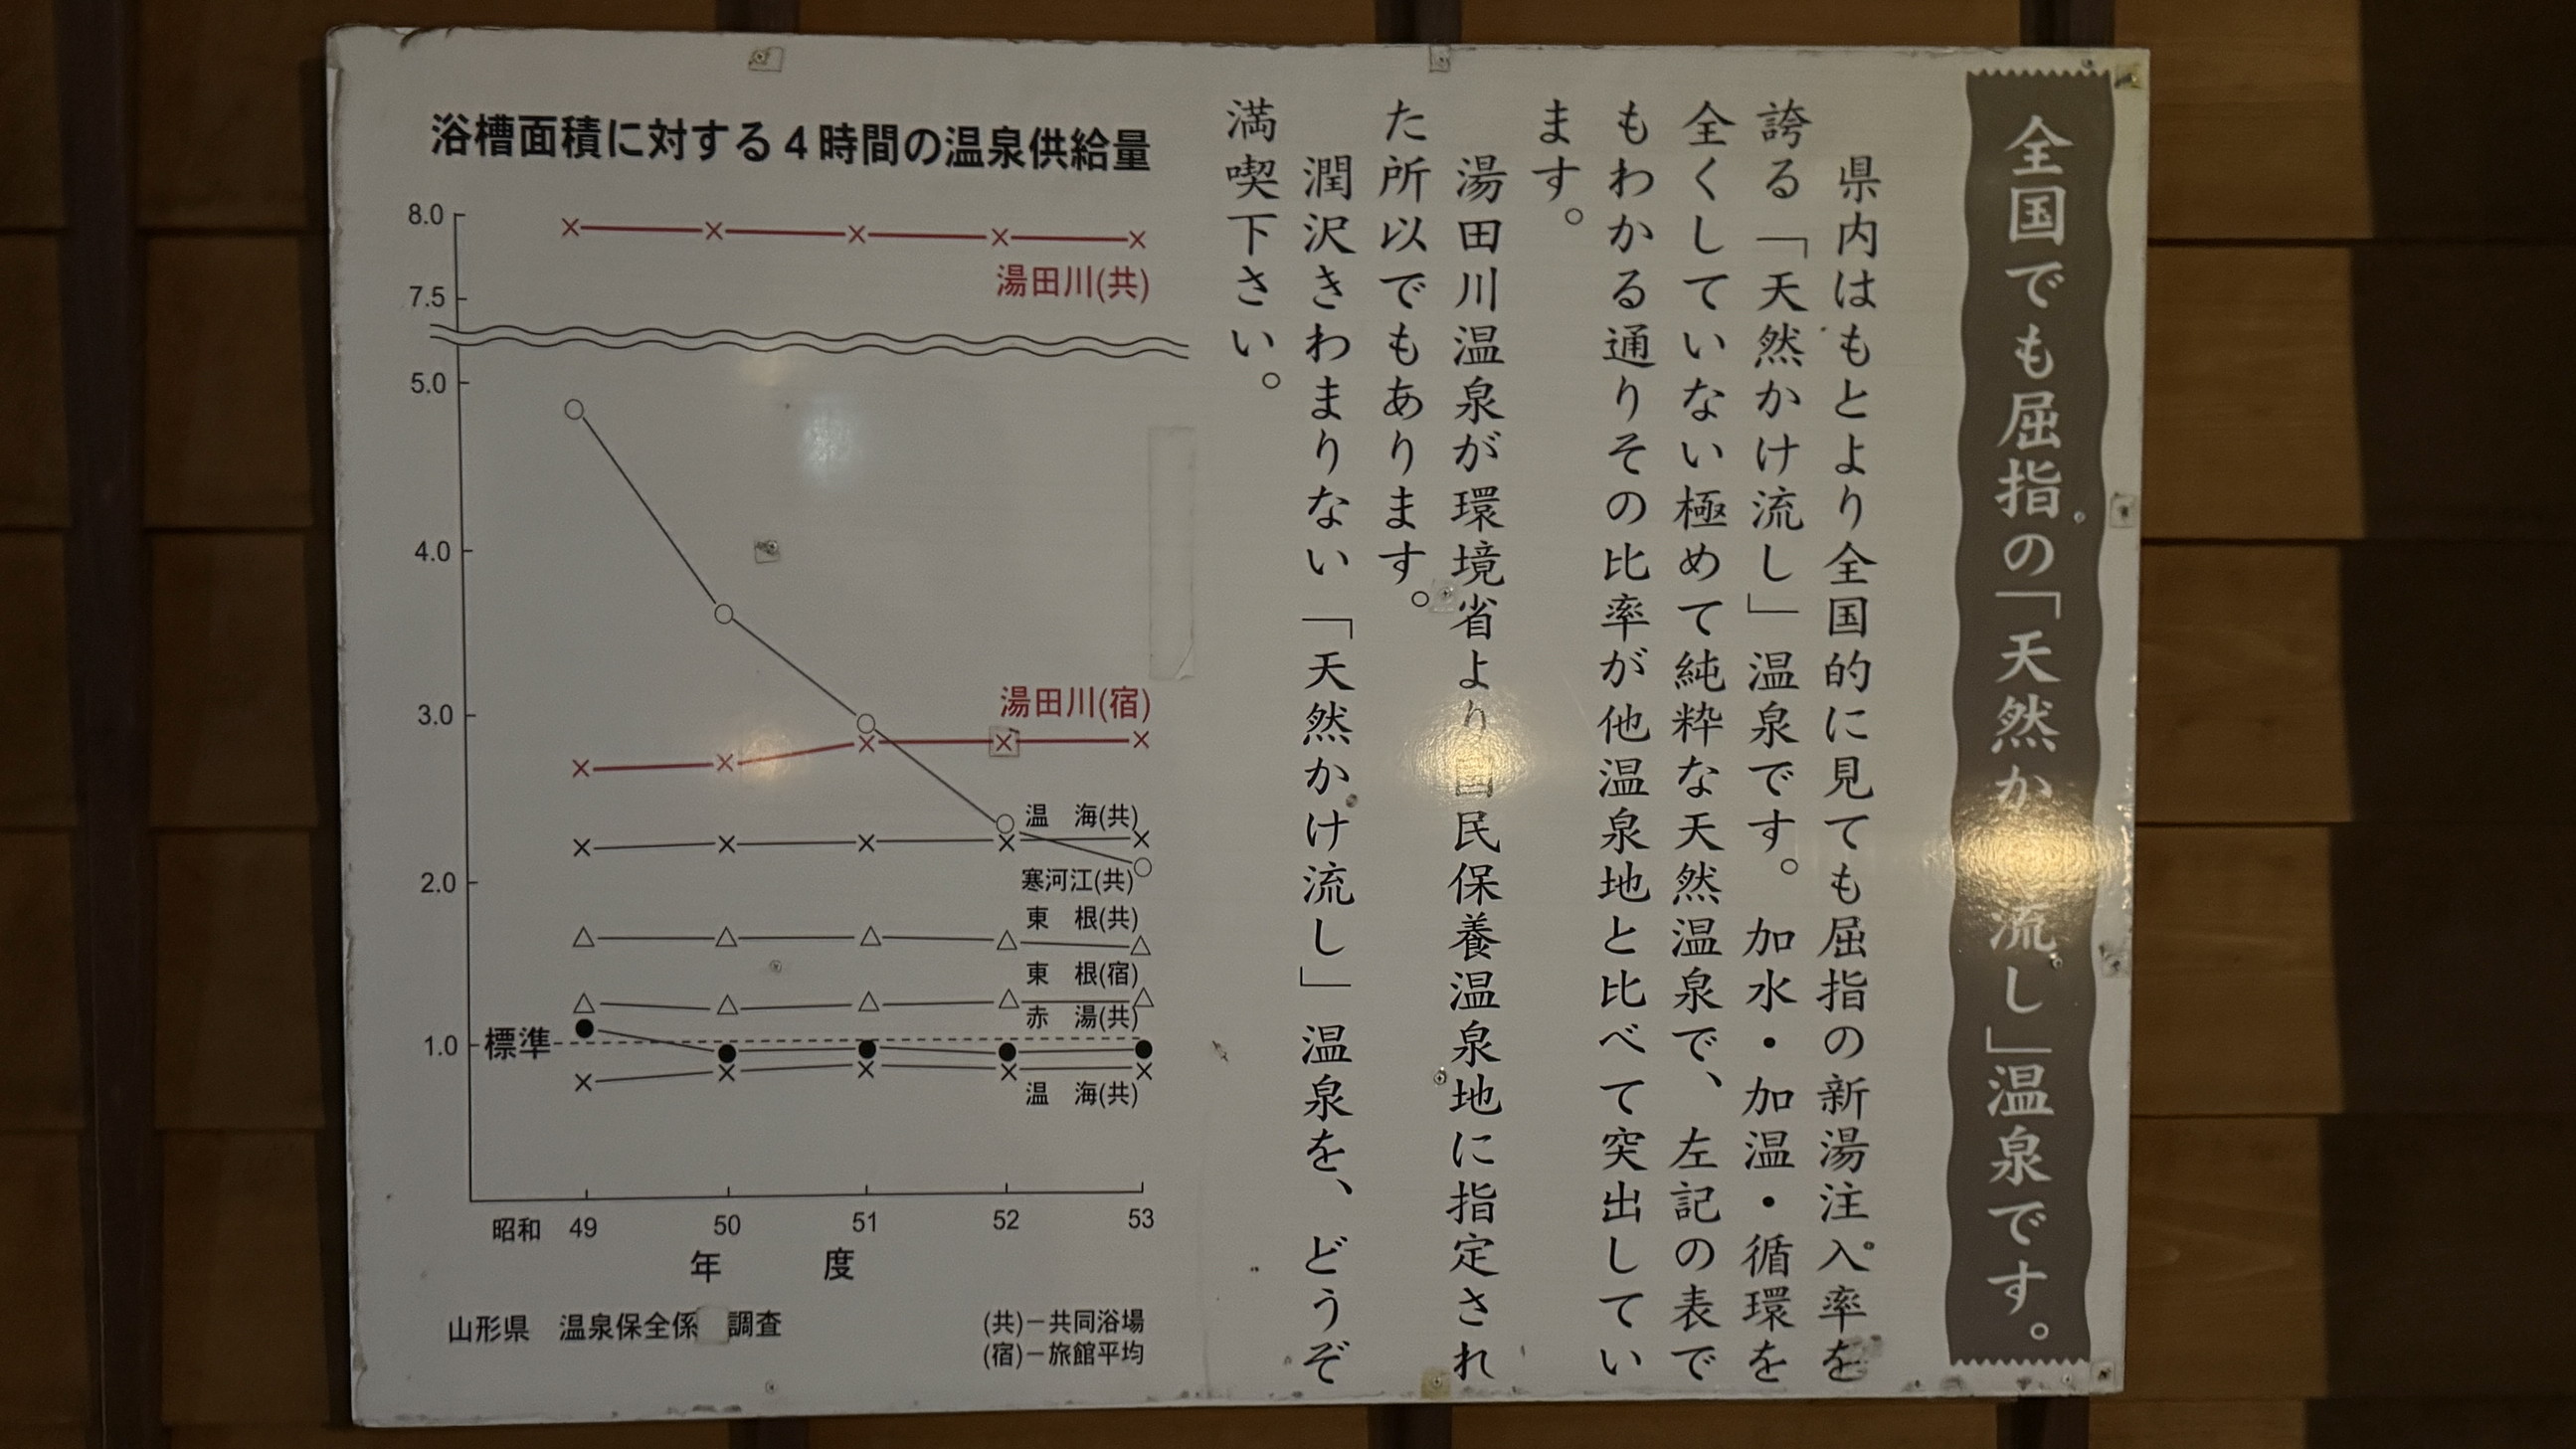 全国でも屈指の「天然かけ流し」温泉です。
県内はもとより全国的に見ても屈指の新湯注入率を
誇る「天然かけ流し」温泉です。加水・加温・循環を
全くしていない極めて純粋な天然温泉で、左記の表で
もわかる通りその比率が他温泉地と比べて突出してい
ます。
湯田川温泉が環境省より国民保養温泉地に指定され
た所以でもあります。
潤沢きわまりない「天然かけ流し」温泉を、どうぞ
満喫下さい。
浴槽面積に対する4時間の温泉供給量
8.0
湯田川(共)
7.5
5.0
4.0
湯田川(宿)
3.0
温 海(共)
2.0
寒河江(共)
東 根(共)
東 根(宿)
赤 湯(共)
1.0 標準
温 海(共)
昭和 49 50 51 52 53
年 度
山形県 温泉保全係 調査
(共)－共同浴場
(宿)－旅館平均